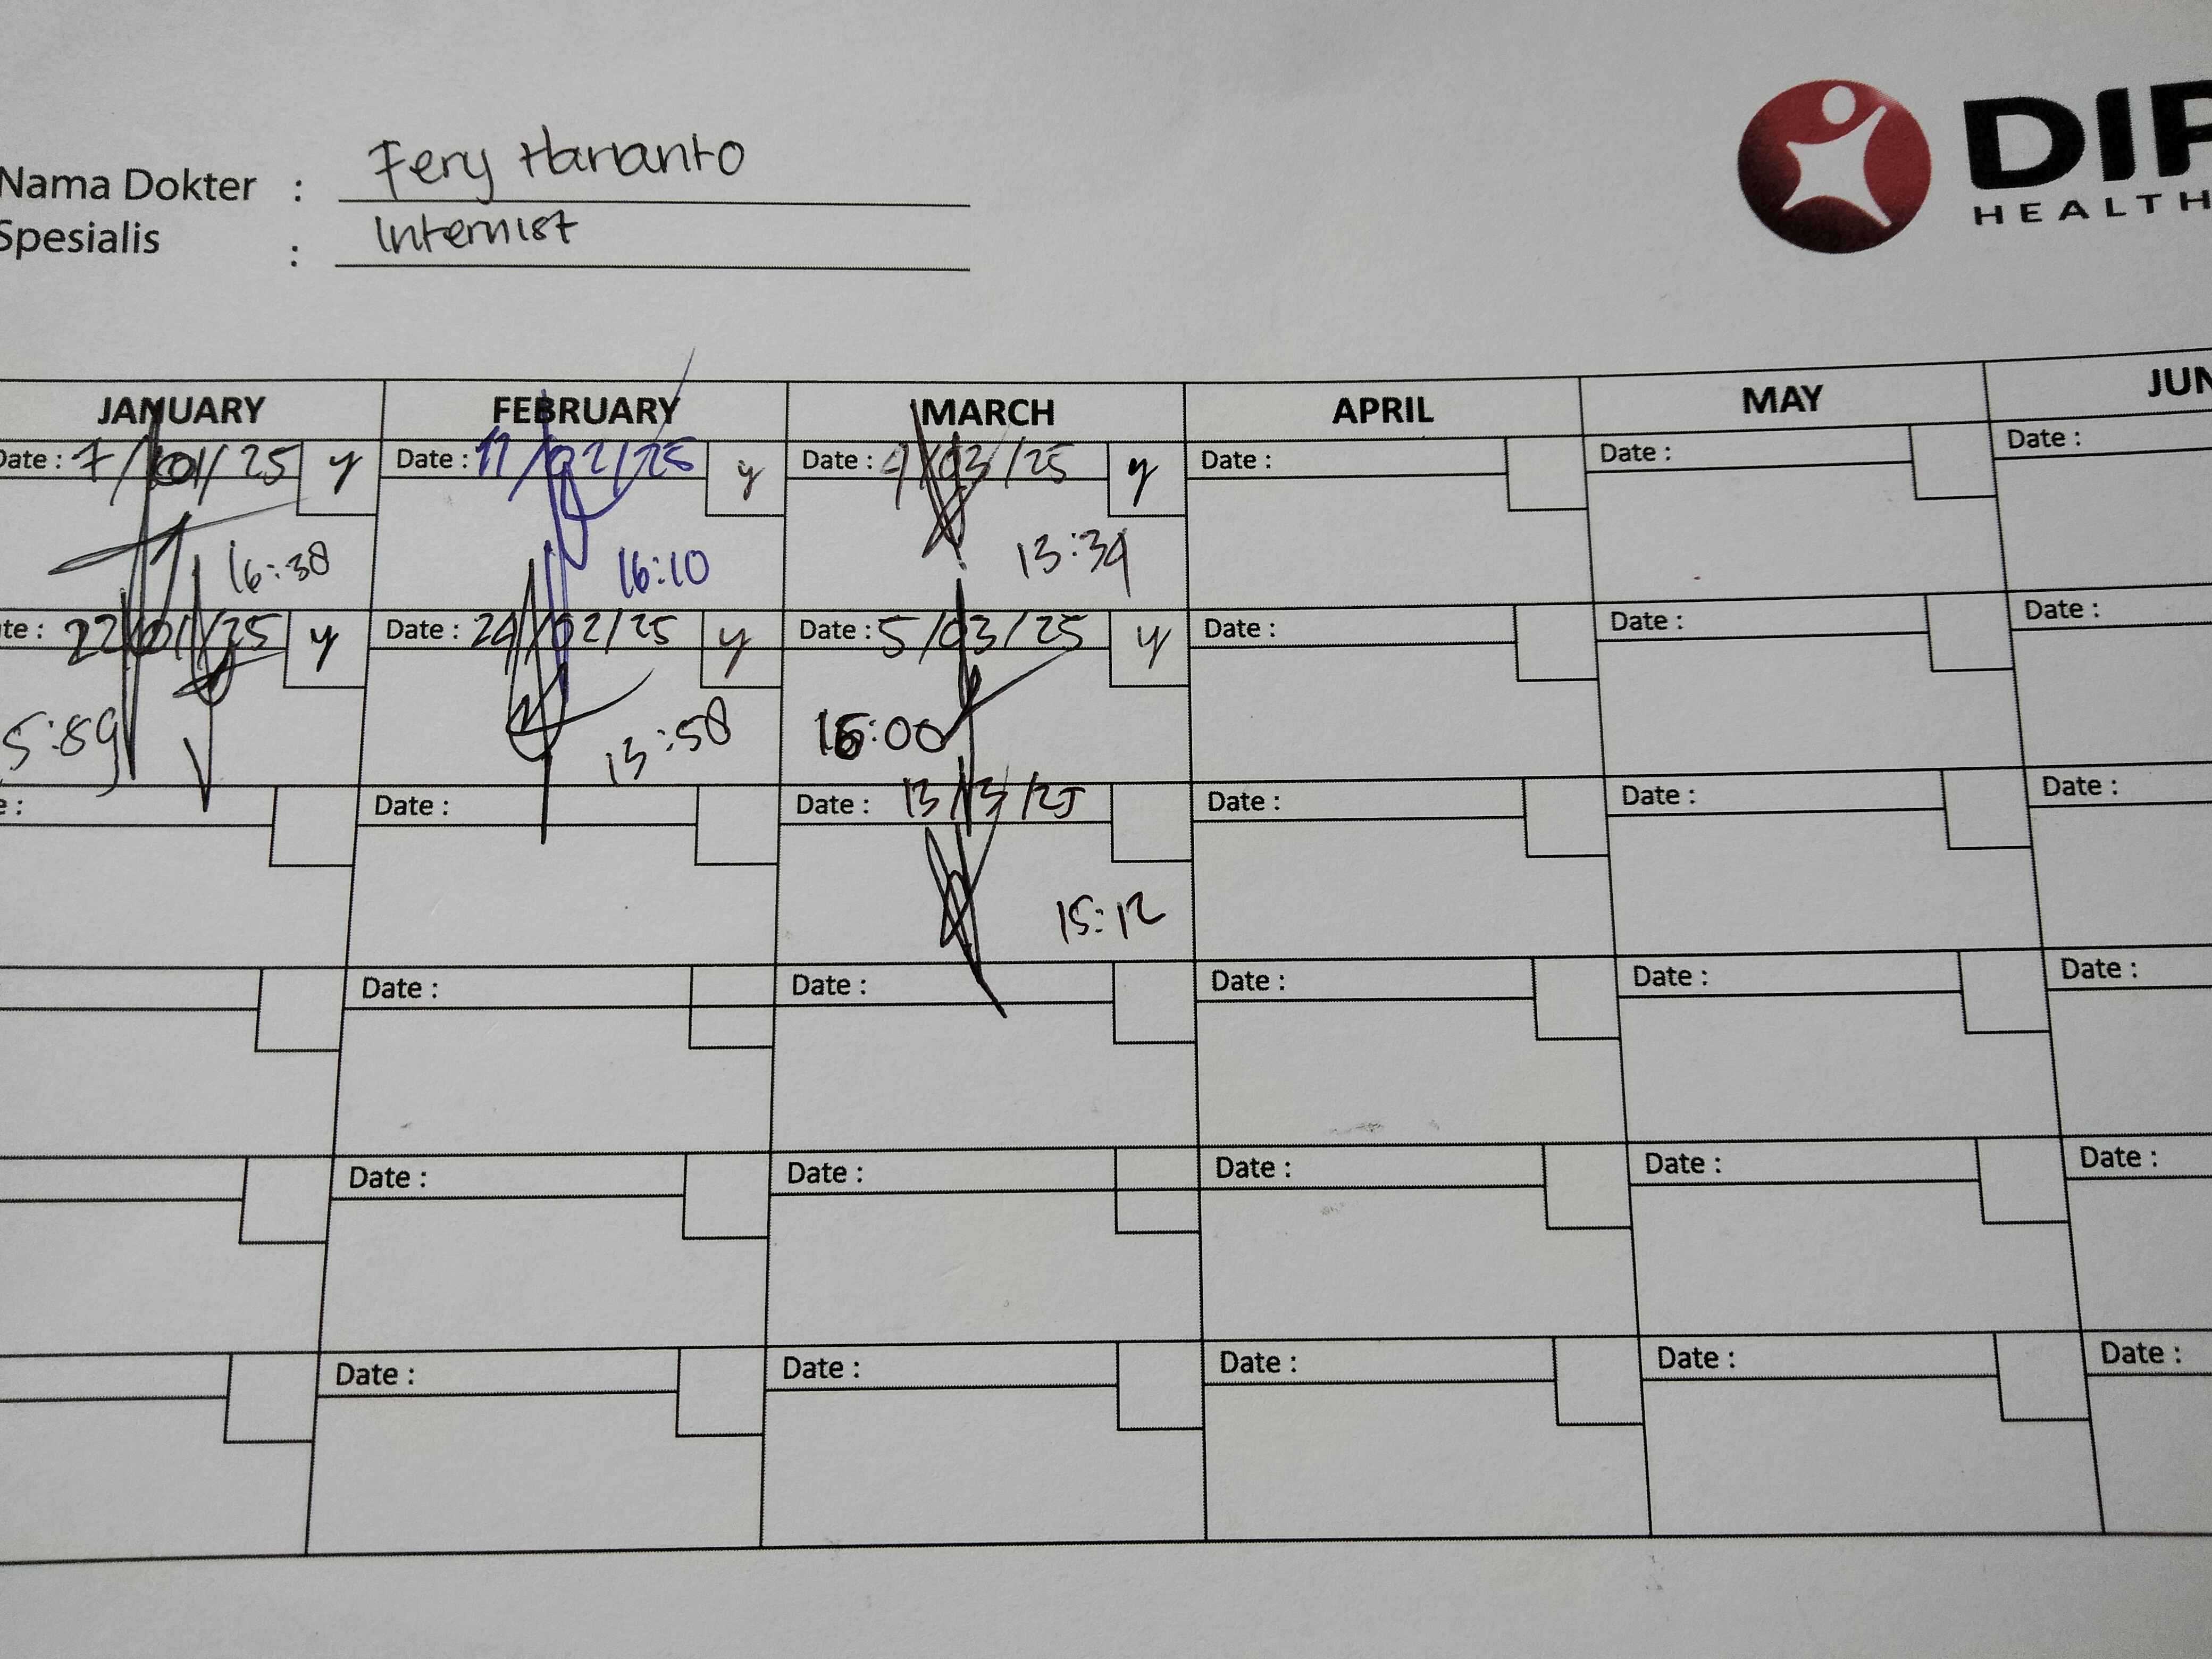 Nama Dokter : Fery Harianto
Spesialis : Internist
DIP
HEALTH
JANUARY FEBRUARY MARCH APRIL MAY JUN
Date : 7/01/25 y Date : 11/02/25 y Date : 4/03/25 y Date : Date : Date :
16:38 16:10 13:34
te : 22/01/25 y Date : 24/02/25 y Date : 5/03/25 y Date : Date : Date :
5:59 13:58 16:00
e : Date : Date : 13/3/25 Date : Date : Date :
15:12
Date : Date : Date : Date : Date :
Date : Date : Date : Date : Date :
Date : Date : Date : Date : Date :